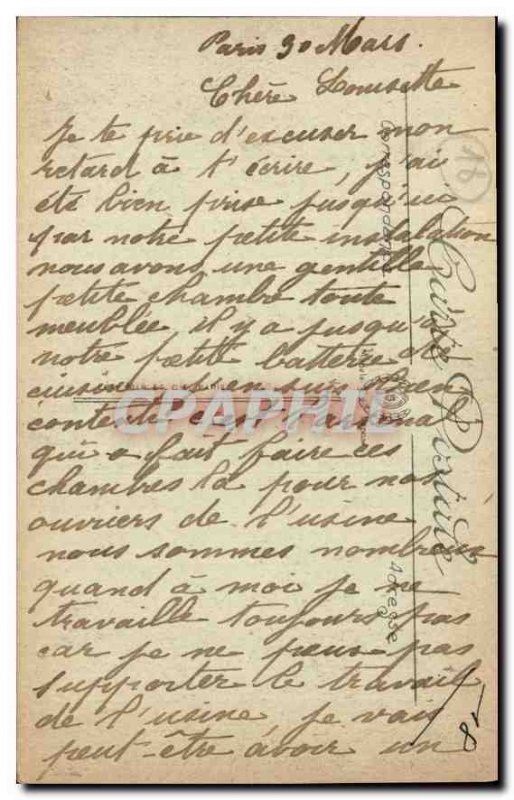 Paris 30 Mars.
Chère Lousette
Je te prie d'excuser mon
retard à t'écrire, j'ai
été bien prise jusqu'ici
par notre petite installation
nous avons une gentille
petite chambre toute
meublée, il y a jusqu'à
notre petite batterie de
cuisine j'en suis bien
contente c'est
qui a fait faire ces
chambres là pour nos
ouvriers de l'usine
nous sommes nombreux
quand à moi je ne
travaille toujours pas
car je ne peux pas
supporter le travail
de l'usine je vais
peut-être avoir un
Correspondance
Carte Postale
Adresse
CPAPHIL
18
18